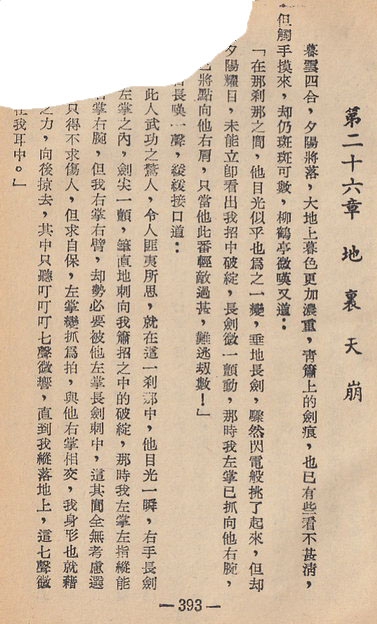 第二十六章 地裏天崩
暮雲四合，夕陽將落，大地上暮色更加濃重，青簫上的劍痕，也已有些看不甚清，
但觸手摸來，却仍斑斑可數，柳鶴亭微嘆又道：
「在那剎那之間，他目光似乎也為之一變，垂地長劍，驟然閃電般挑了起來，但却
夕陽耀目，未能立卽看出我招中破綻，長劍微一顫動，那時我左掌已抓向他右腕，
已將點向他右肩，只當他此番輕敵過甚，難逃刼數！」
長嘆一聲，緩緩接口道：
此人武功之驚人，令人匪夷所思，就在這一刹那中，他目光一瞬，右手長劍
左掌之內，劍尖一顫，筆直地刺向我簫招之中的破綻，那時我左掌左指縱能
右掌右腕，但我右掌右臂，却勢必要被他左掌長劍刺中，這其間全無考慮選
只得不求傷人，但求自保，左掌變抓為拍，與他右掌相交，我身形也就藉
之力，向後掠去，其中只聽叮叮叮七聲微響，直到我縱落地上，這七聲微
在我耳中。」
—393—